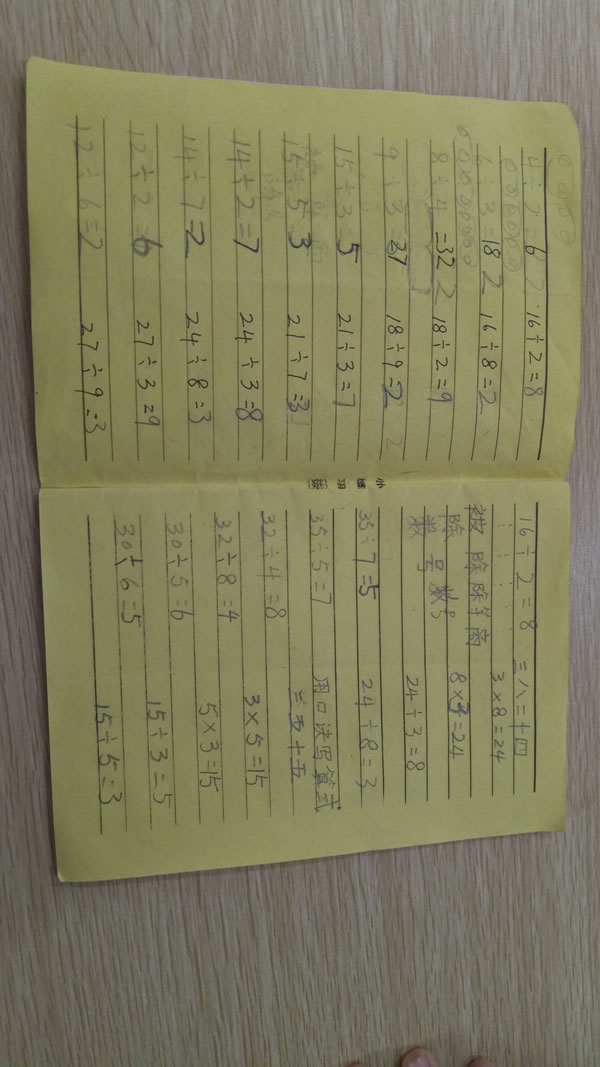 4÷2=6 2
6÷3=18 2
8÷4=32 2
9÷3=27
15÷3=5
15÷5=3
14÷2=7
14÷7=2
12÷2=6
12÷6=2
16÷2=8
16÷8=2
18÷2=9
18÷9=2 2
21÷3=7
21÷7=3
24÷3=8
24÷8=3
27÷3=9
27÷9=3
16÷2=8
被除除等商
除号数号
数
35÷7=5
35÷5=7
32÷4=8
32÷8=4
30÷5=6
30÷6=5
三八二十四
3×8=24
8×3=24
24÷3=8
24÷8=3
用口决写算式
三五十五
3×5=15
5×3=15
15÷3=5
15÷5=3